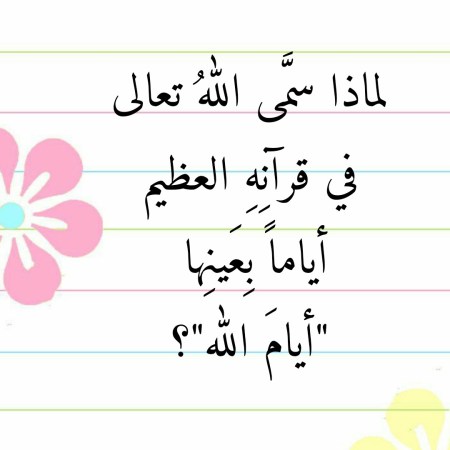 لماذا سمَّى اللهُ تعالى
في قرآنِهِ العظيم
أياماً بِعَينِها
"أيامَ الله"؟